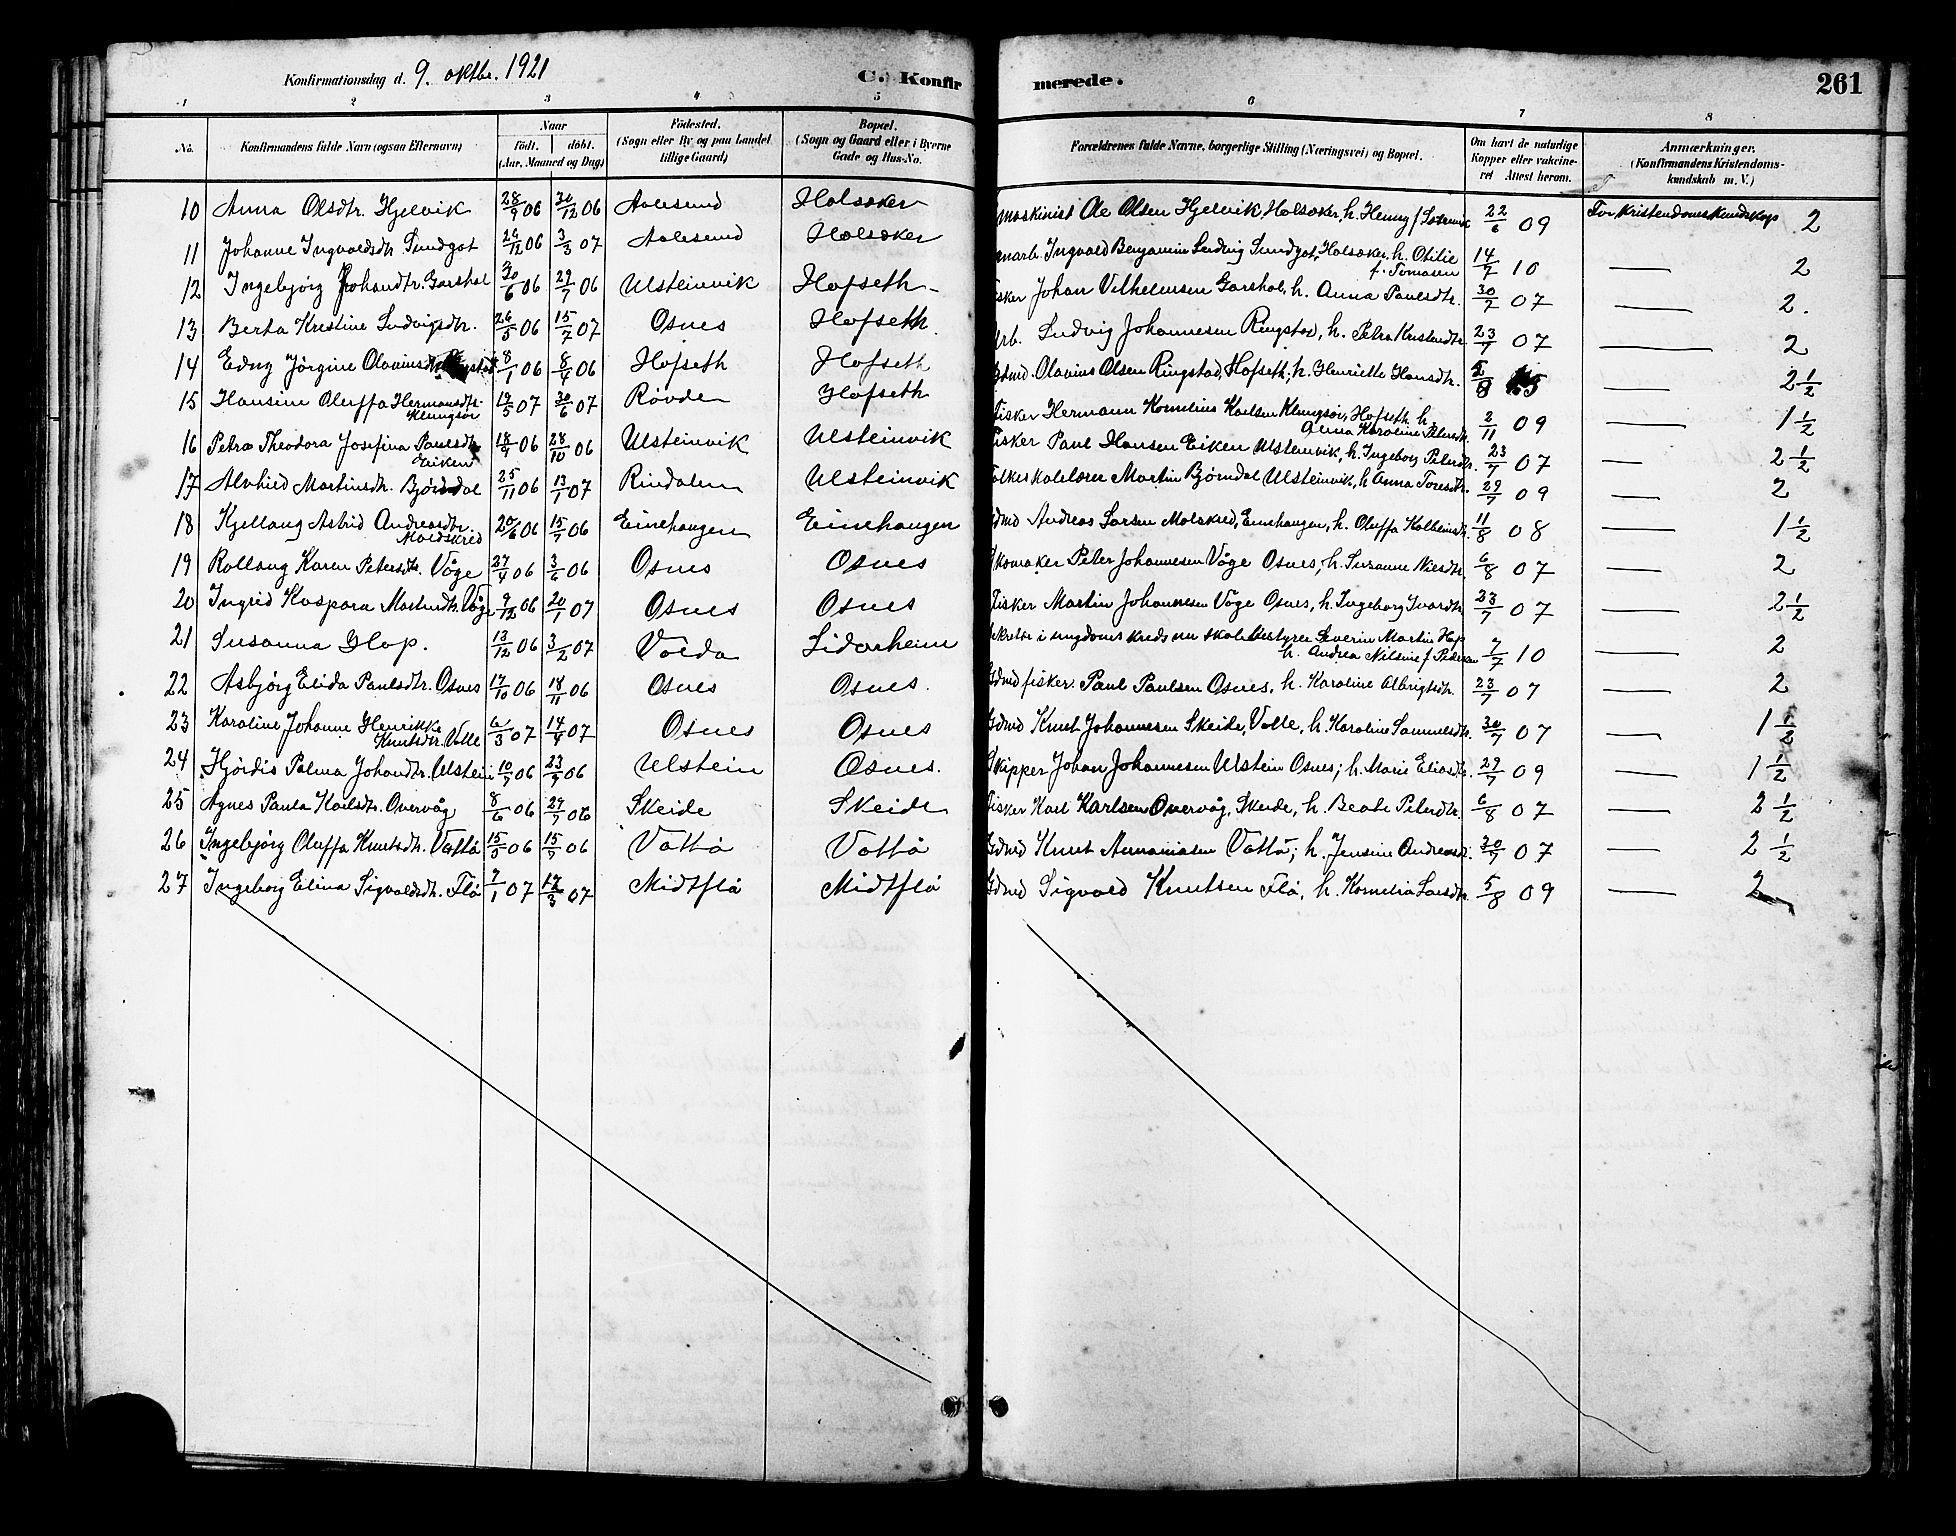 Konfirmationsdag d. 9. oktbr. 1921
C. Konfirmerede.
261
1 2 3 4 5 6 7 8
No. Konfirmandens fulde Navn (ogsaa Efternavn) Naar født. døbt. (Aar, Maaned og Dag) Fødested. (Sogn eller By og paa Landet tillige Gaard) Bopæl. (Sogn og Gaard eller i Byerne Gade og Hus-No. Forældrenes fulde Navne, borgerlige Stilling (Næringsvei) og Bopæl. Om havt de naturlige Kopper eller vakcineret Attest herom. Anmærkninger. (Konfirmandens Kristendomskundskab m. V.)
10 Anna Olsdtr. Hjelvik 28/9 06 30/12 06 Aalesund Holsøker maskinist Ole Olsen Hjelvik Holsøker, h. Henny f. 22/6 09 For Kristendomskundskap 2
11 Johanne Ingvaldsdtr. Sundgot 26/12 06 3/3 07 Aalesund Holsøker Ingvald Benjamin Ludvig Sundgot, Holsøker, h. Otilie f. Tomasen 14/7 10 — 2
12 Ingebjørg Johandtr. Garshol 30/6 06 29/7 06 Ulsteinvik Hofseth - Fisker Johan Vilhelmsen Garshol, h. Anna Paulsdtr. 30/7 07 — 2.
13 Berta Kristine Ludvigsdtr. 26/5 06 15/7 07 Osnes Hofseth Ludvig Johannesen Ringstad, h. Petra Kristendtr. 23/7 07 — 2
14 Edny Jørgine Olavius 8/1 06 8/4 06 Hofseth Hofseth Gdmd. Olavius Olsen Ringstad, Hofseth, h. Henriette Hansdtr. — 2 1/2
15 Hansine Oluffa Hermansdtr. Klungsør 19/5 07 30/6 07 Røvde Hofseth Fisker Hermann Kornelius Karlsen Klungsør, Hofseth h. Anna Karoline Petersdtr. 2/11 09 — 1 1/2
16 Petra Theodora Josefina Paulsdtr Eiken 18/9 06 28/10 06 Ulsteinvik Ulsteinvik Fisker Paul Hansen Eiken Ulsteinvik, h. Ingeborg Petersdtr. 23/7 07 — 2 1/2
17 Alvhild Martinsdtr. Bjørndal 25/11 06 13/1 07 Rindalen Ulsteinvik Folkeskolelærer Martin Bjørndal Ulsteinvik, h Anna Toresdtr. 29/7 09 — 2
18 Kjellaug Astrid Andreasdtr. Moldskred 20/6 06 15/7 06 Einehaugen Einehaugen Gdmd Andreas Larsen Molskred, Einehaugen, h. Oluffa Kolbeinsdtr. 11/8 08 — 1 1/2
19 Rollaug Karen Petersdtr. Våge 27/4 06 3/6 06 Osnes Osnes Skomaker Peter Johannesen Våge Osnes, h. Susanne Nilsdtr. 6/8 07 — 2
20 Ingrid Kaspara Martinsdtr. Våge 9/12 06 20/1 07 Osnes Osnes Fisker Martin Johannesen Våge Osnes, h. Ingeborg Ivarsdtr. 23/7 07 — 2 1/2
21 Susanna Hop. 13/12 06 3/2 07 Volda Lidarheim Sekretær i ungdomskredsen skolebestyrer Severin Martin Hop h. Andrea Nilsine f Pedersen 7/7 10 — 2
22 Asbjørg Elida Paulsdtr. Osnes 17/10 06 18/11 06 Osnes Osnes. Gdmd fisker. Paul Paulsen Osnes, h. Karoline Albrigtsdtr. 23/7 07 — 2
23 Karoline Johanne Henrikke Knutsdtr. Volle 6/3 07 14/4 07 Osnes Osnes Gdmd Knut Johannesen Skeide, Volle, h. Karoline Samuelsdtr. 30/7 07 — 1 1/2
24 Hjørdis Palma Johandtr. Ulstein 10/7 06 23/9 06 Ulstein Osnes. Skipper Johan Johannesen Ulstein Osnes; h. Marie Eliasdtr. 29/7 09 — 1 1/2
25 Agnes Paula Karlsdtr. Overvåg 8/6 06 29/7 06 Skeide Skeide Fisker Karl Karlsen Overvåg, Skeide, h. Beate Petersdtr. 6/8 07 — 2 1/2
26 Ingebjørg Oluffa Knutsdtr. Vattø 15/5 06 15/7 06 Vattø Vattø Gdmd Knut Annaniasen Vattø; h. Jensine Andreasdtr. 30/7 07 — 2 1/2
27 Ingeborg Elina Sigvaldsdtr. Flø 7/1 07 17/3 07 Midtflø Midtflø Gdmd Sigvald Knutsen Flø, h. Kornelia Larsdtr. 5/8 09 — 2